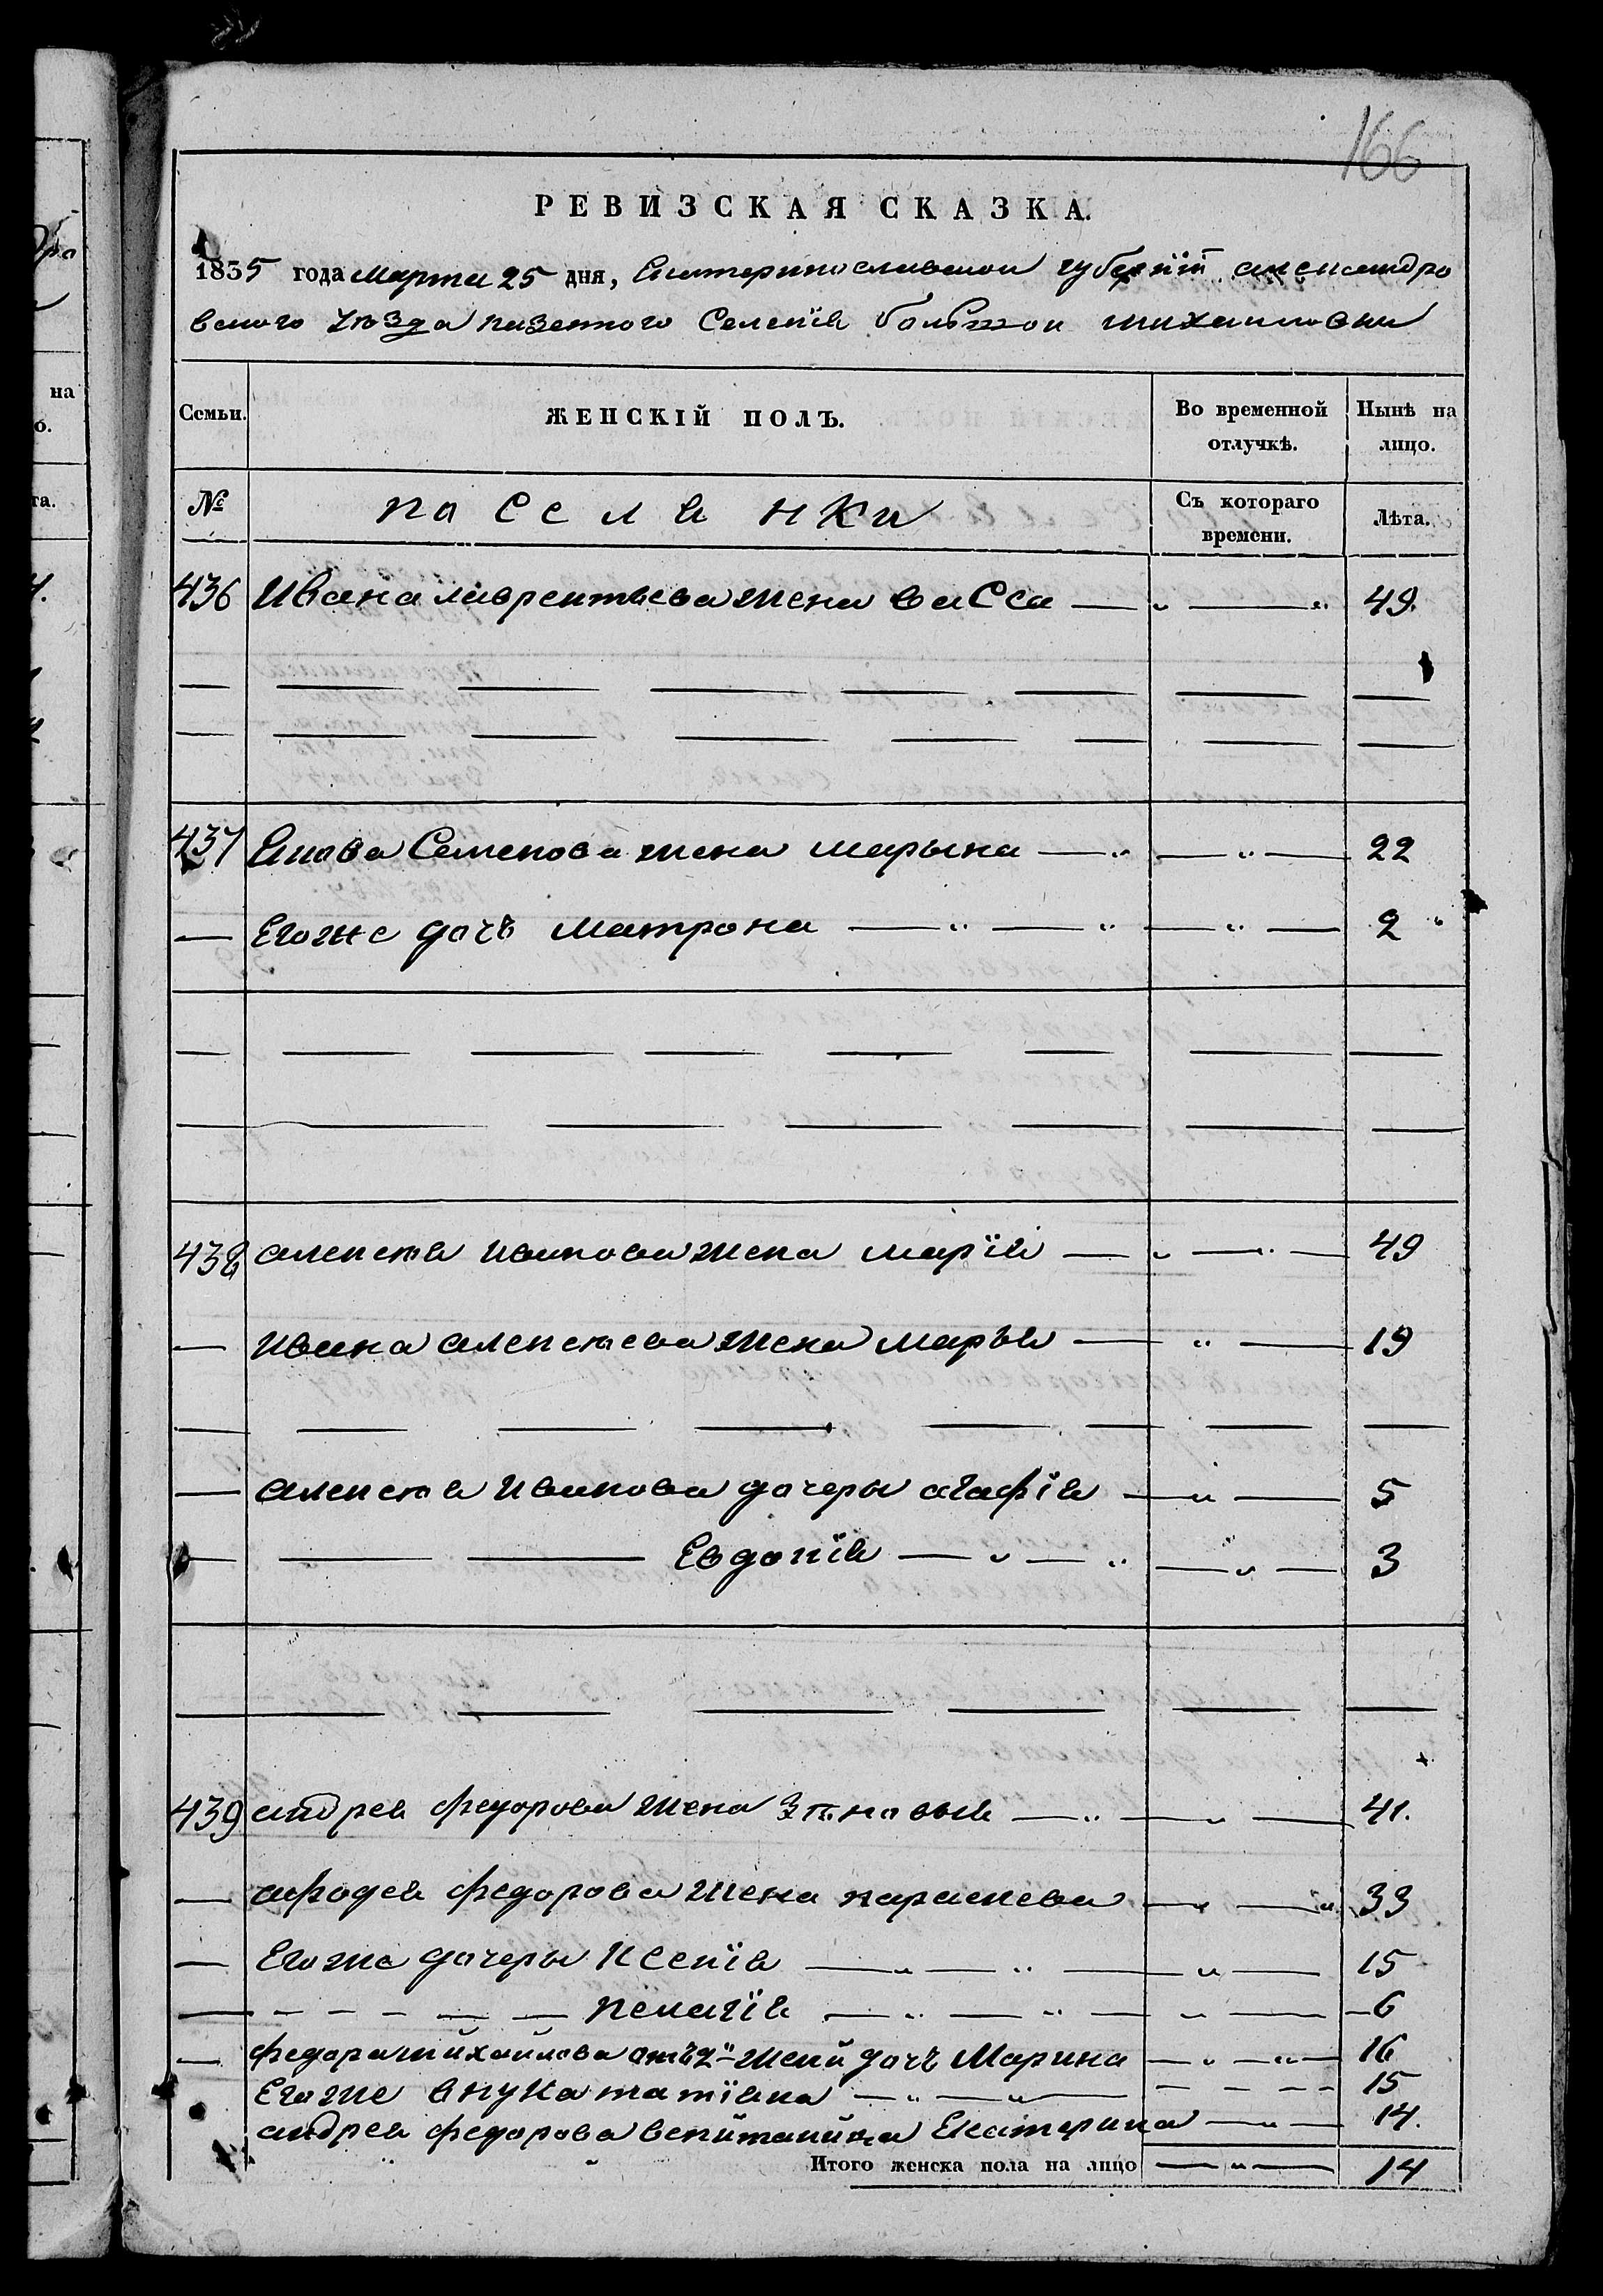 166
РЕВИЗСКАЯ СКАЗКА.
1835 года Марта 25 дня, Екатеринославской губернїй александро
вского Уѣзда казенного Селенїя большой михаиловки
на
о.
Семьи.
ЖЕНСКІЙ ПОЛЪ.
Во временной отлучкѣ.
Нынѣ на лицо.
та.
№
поселянки
Съ котораго времени.
Лѣта.
436 Ивана лаврентьева жена васса 49.
437 Якова Семенова жена марына 22
Егоже дочъ матрона 2
438 алексѣя иванова жена марїя 49
ивана алексѣева жена марья 19
алексѣя иванова дочеры агафїя 5
Евдокїя 3
439 андрея федорова жена зѣновыя 41.
федорова жена параскева 33
Егоже дочеры Ксенїя 15
пелагїя 6
федора михайлова отъ 2й жены дочъ Марина 16
Егоже внука татїана 15
андрея федорова Екатерина 14.
Итого женска пола на лицо 14